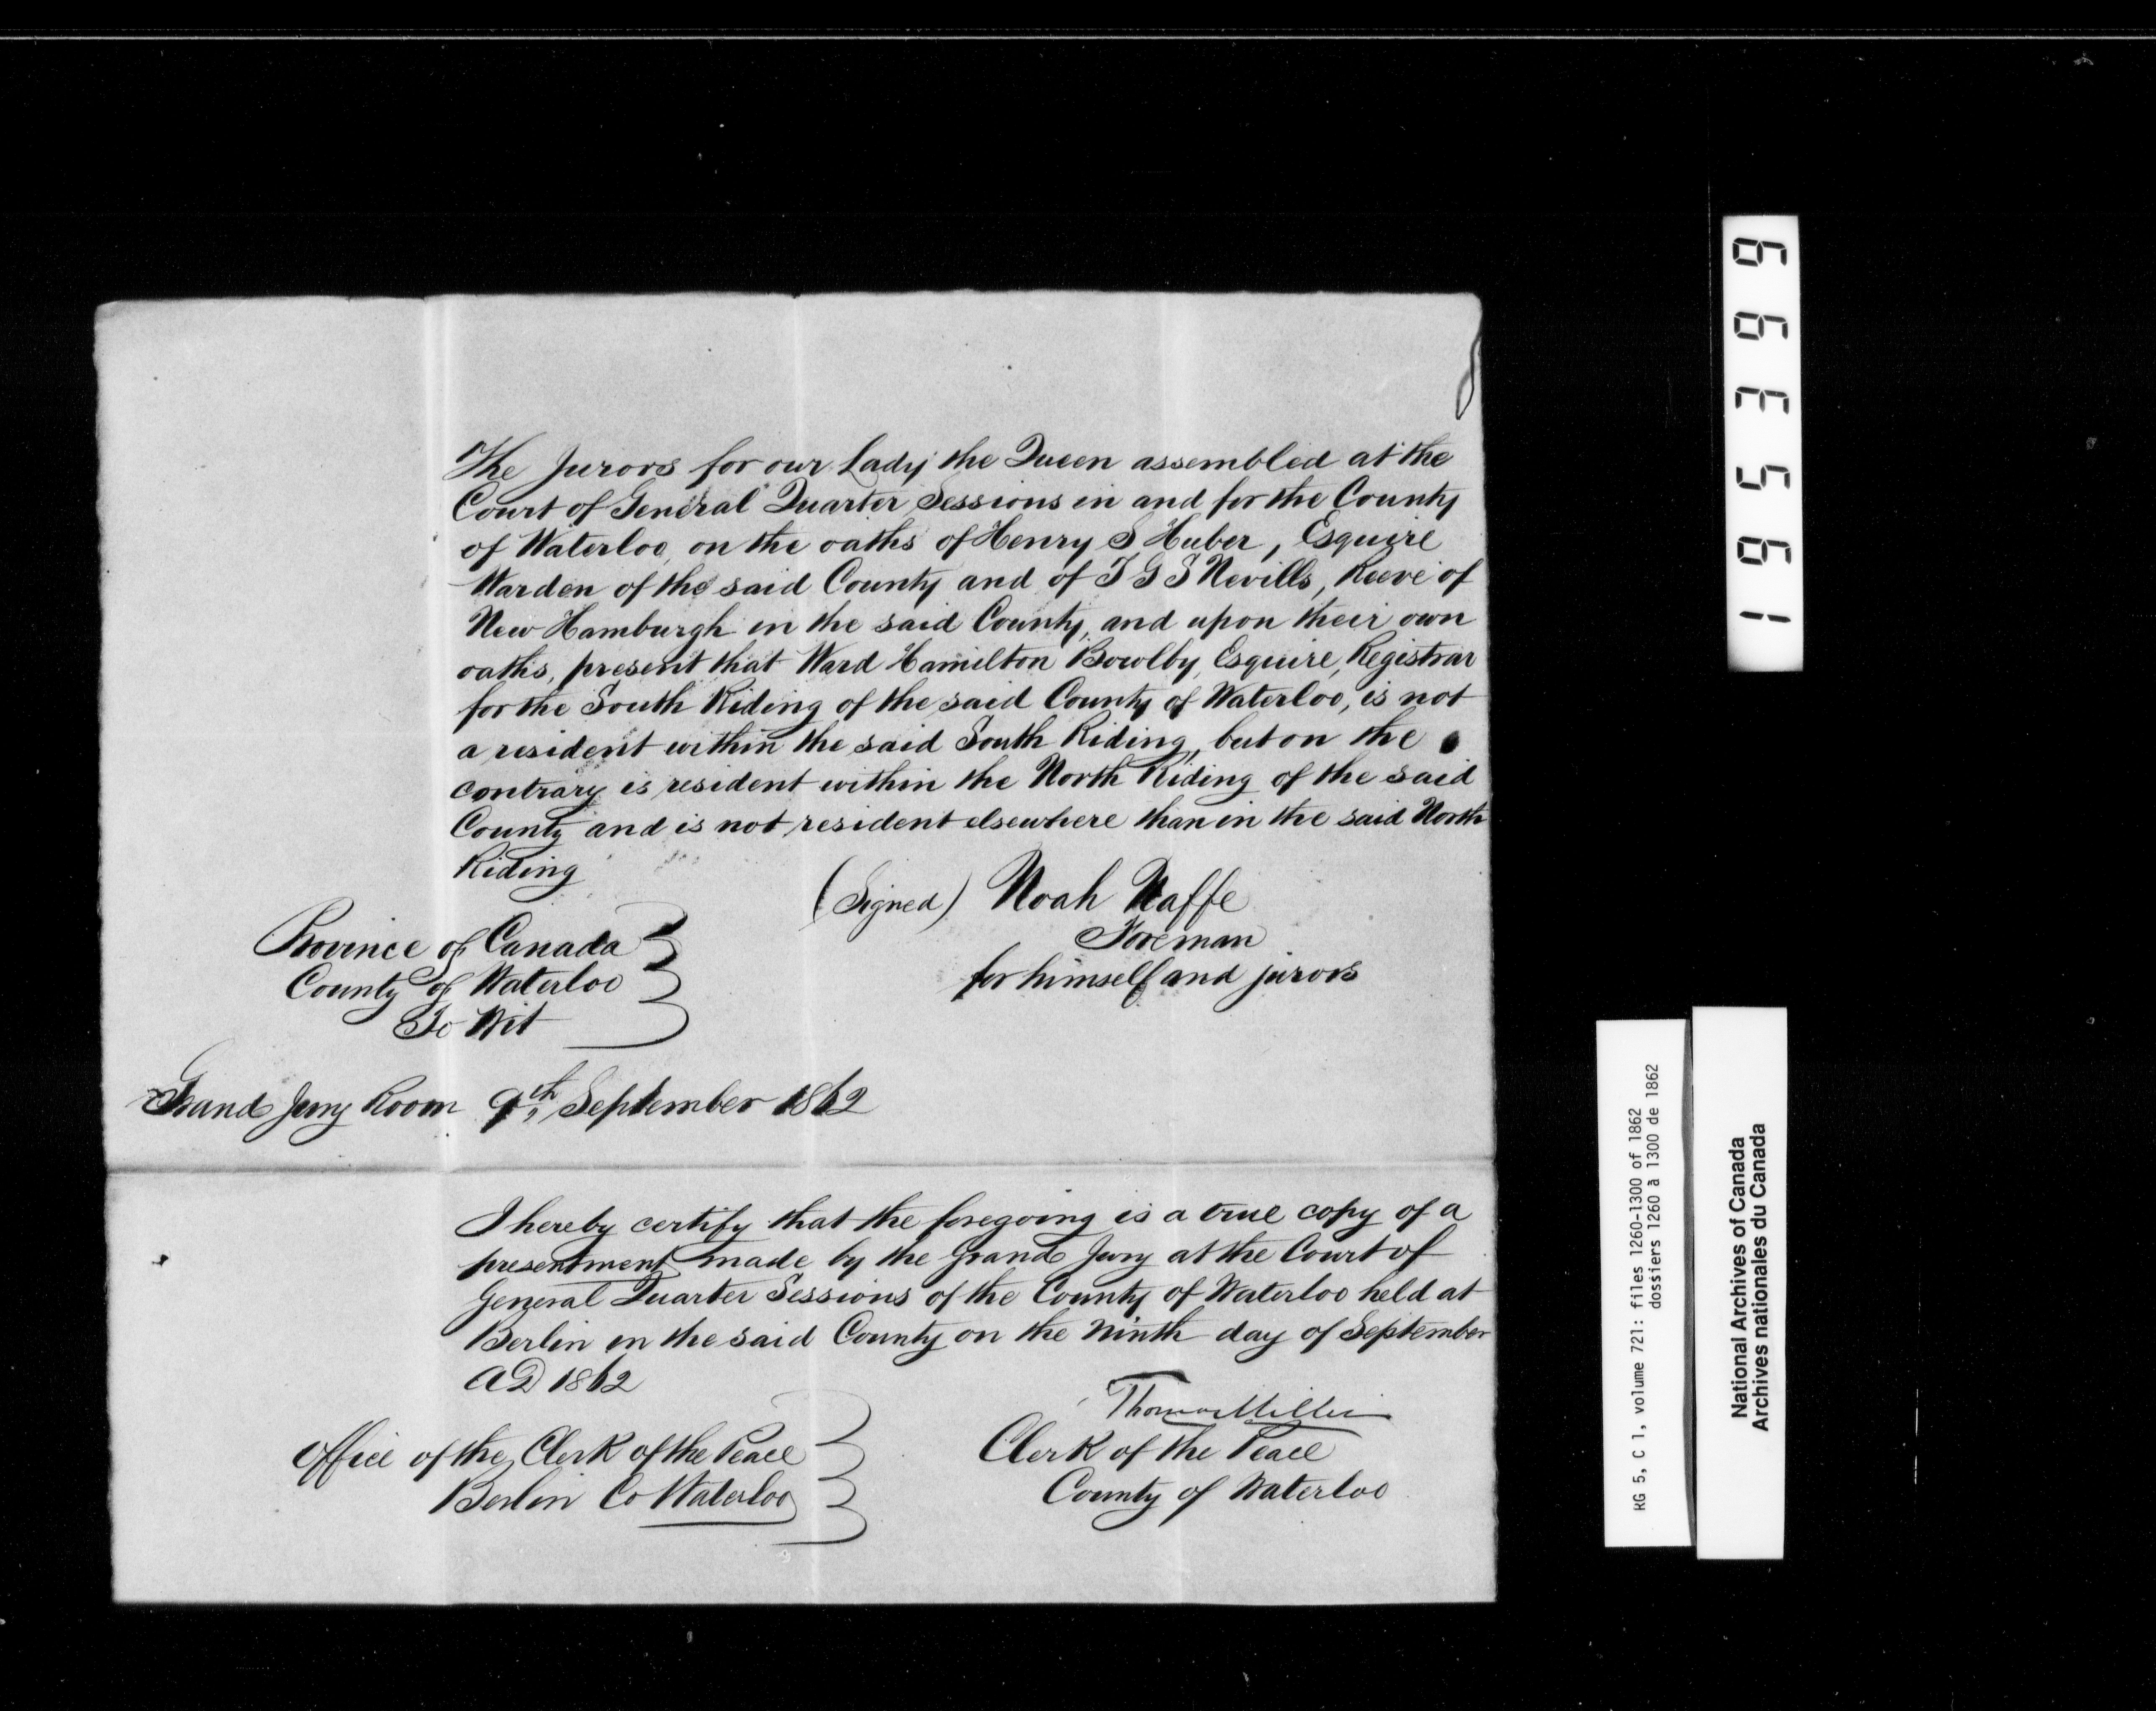 The Jurors for our Lady the Queen assembled at the
Court of General Quarter Sessions in and for the County
of Waterloo, on the oaths of Henry S Huber, Esquire
Warden of the said County and of T G S Nevills, Reeve of
New Hamburgh in the said County, and upon their own
oaths, present that Ward Hamilton Bowlby, Esquire, Registrar
for the South Riding of the said County of Waterloo, is not
a resident within the said South Riding, but on the
contrary is resident within the North Riding of the said
County and is not resident elsewhere than in the said North
Riding
(Signed) Noah Naffe
Foreman
for himself and jurors
Province of Canada
County of Waterloo
To Wit
Grand Jury Room 9th, September 1862
I hereby certify that the foregoing is a true copy of a
presentment made by the Grand Jury at the Court of
General Quarter Sessions of the County of Waterloo held at
Berlin in the said County on the ninth day of September
AD 1862
Thomas Miller
Clerk of the Peace
County of Waterloo
Office of the Clerk of the Peace
Berlin Co Waterloo
195399
RG 5, C 1, volume 721: files 1260-1300 of 1862
dossiers 1260 à 1300 de 1862
National Archives of Canada
Archives nationales du Canada